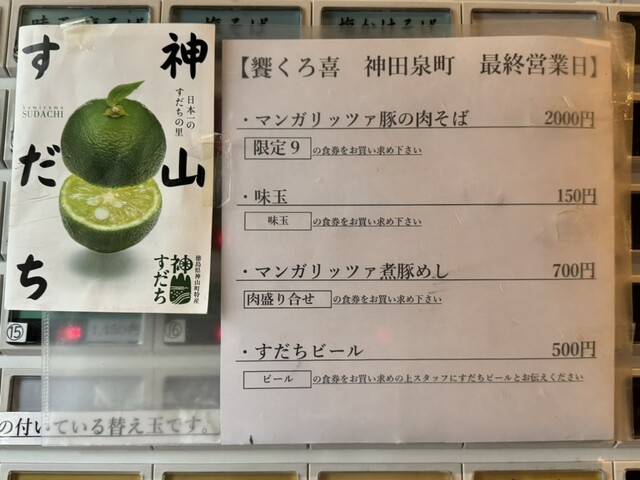 神山すだち
Kamiyama
SUDACHI
日本一の
すだちの里
神山すだち
徳島県神山町特産
【饗くろ喜　神田泉町　最終営業日】
・マンガリッツァ豚の肉そば　2000円
限定９の食券をお買い求め下さい
・味玉　150円
味玉の食券をお買い求め下さい
・マンガリッツァ煮豚めし　700円
肉盛り合せの食券をお買い求め下さい
・すだちビール　500円
ビールの食券をお買い求めの上スタッフにすだちビールとお伝えください
⑮
⑯
の付いている替え玉です。